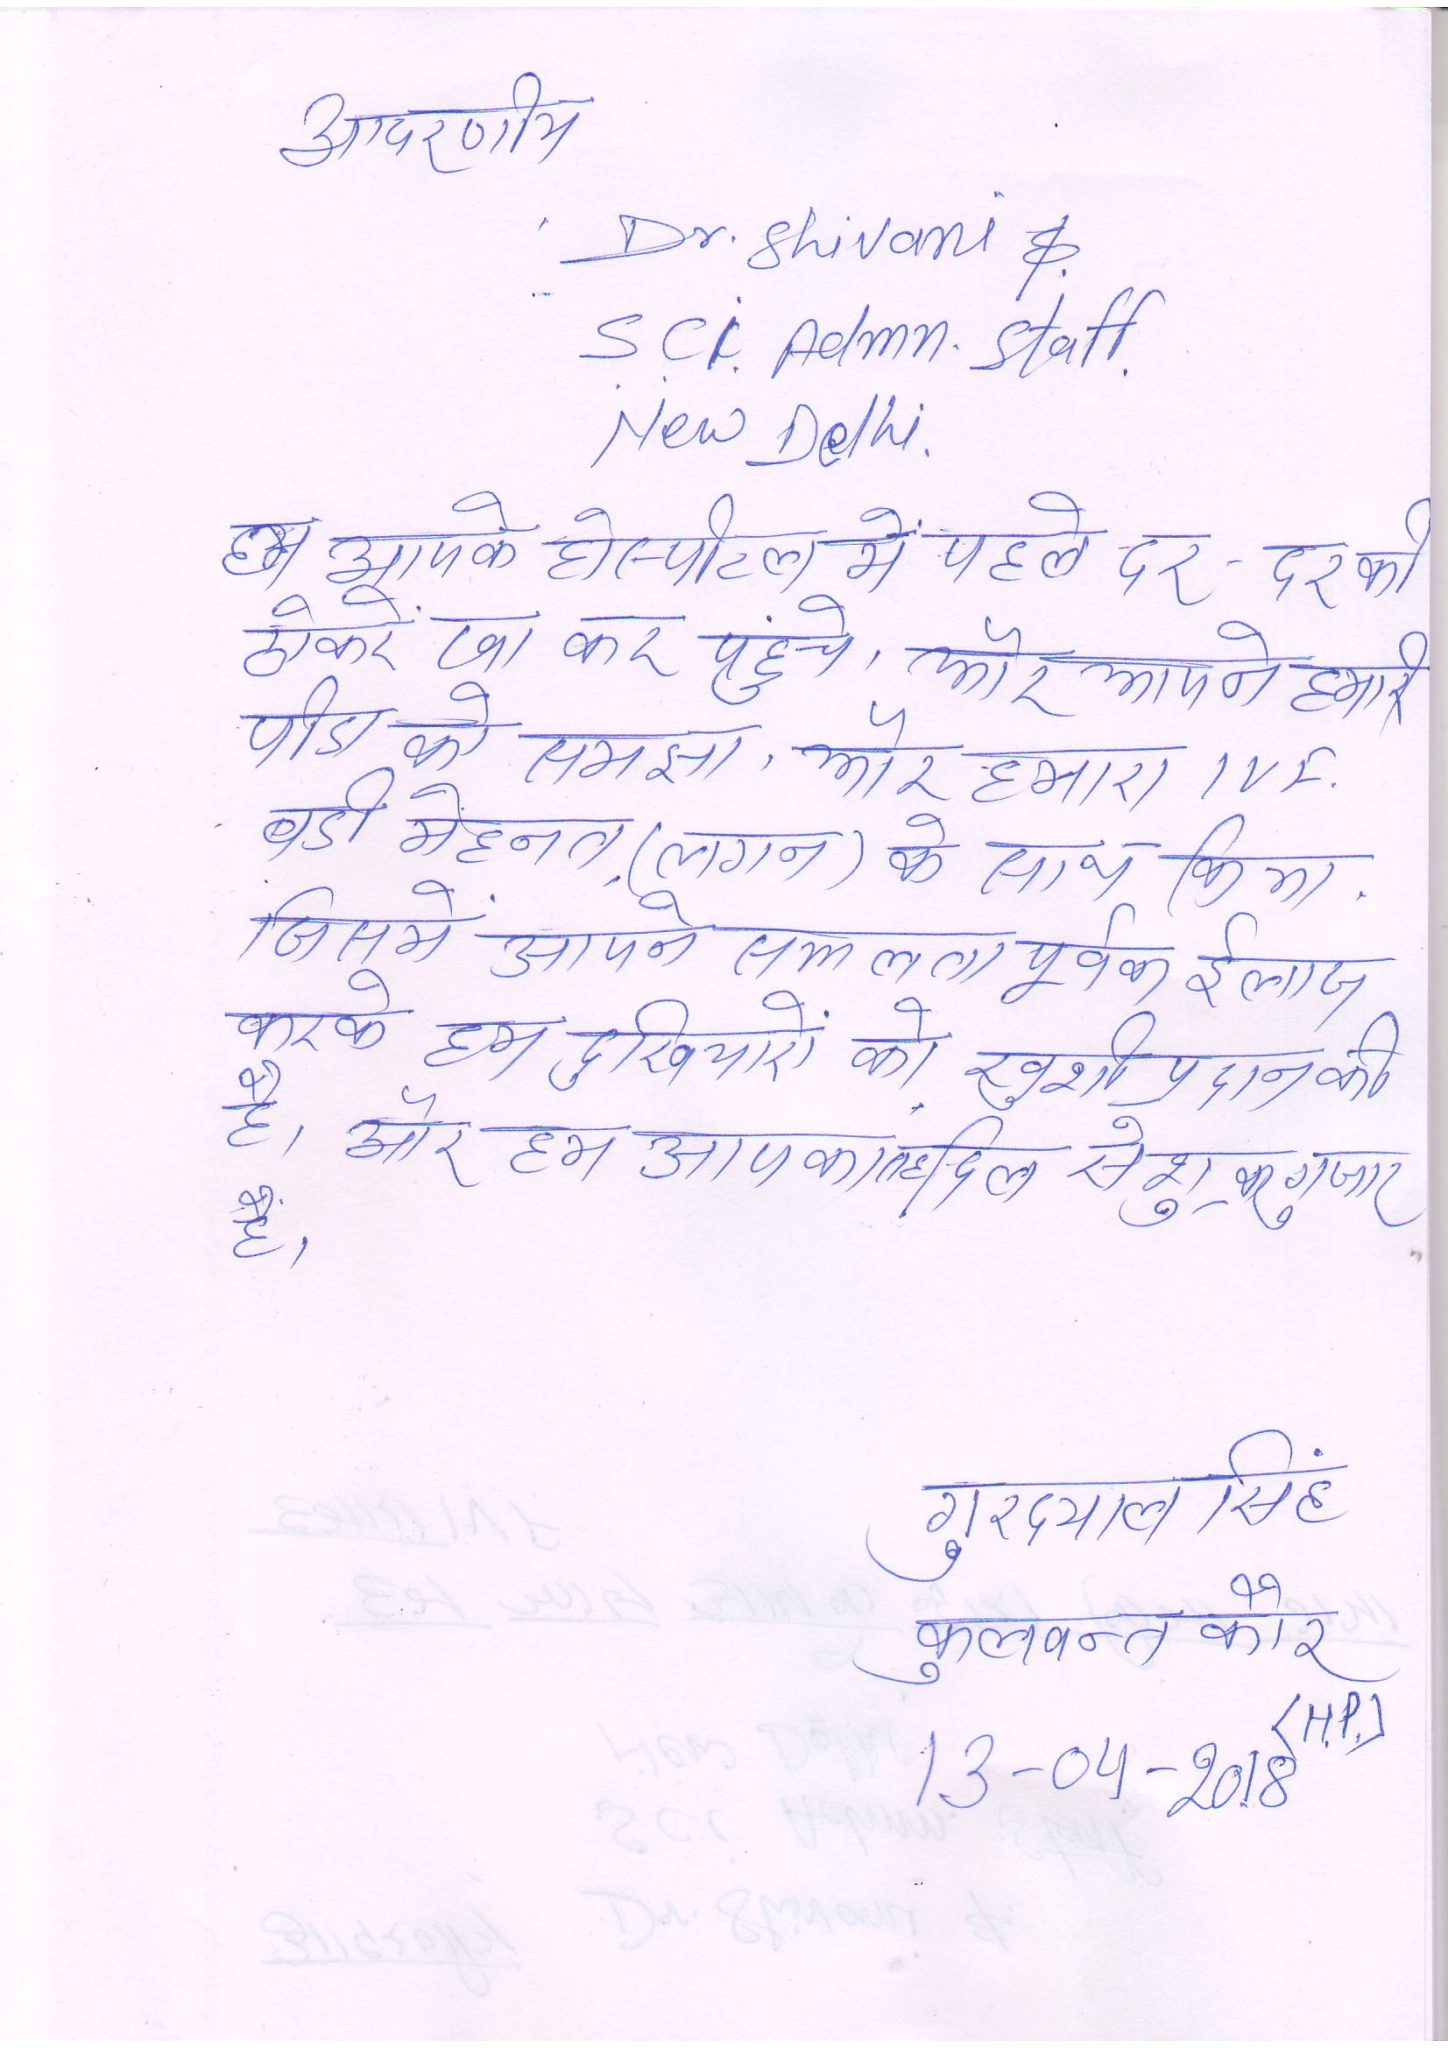 आदरणीय
Dr. Shivani &
S.C.I. Admn. Staff.
New Delhi.
हम आपके होस्पीटल में पहले दर-दर की
ठोकरें खा कर पहुंचे, और आपने हमारी
पीडा को समझा, और हमारा IVF.
बडी मेहनत (लगन) के साथ किया.
जिसमें आपने सफलता पूर्वक ईलाज
करके हम दुखियारों को खुशी प्रदान की
है। और हम आपका तहदिल से शुक्रगुजार
हैं।
गुरदयाल सिंह
कुलवन्त कौर
(H.P.)
13-04-2018